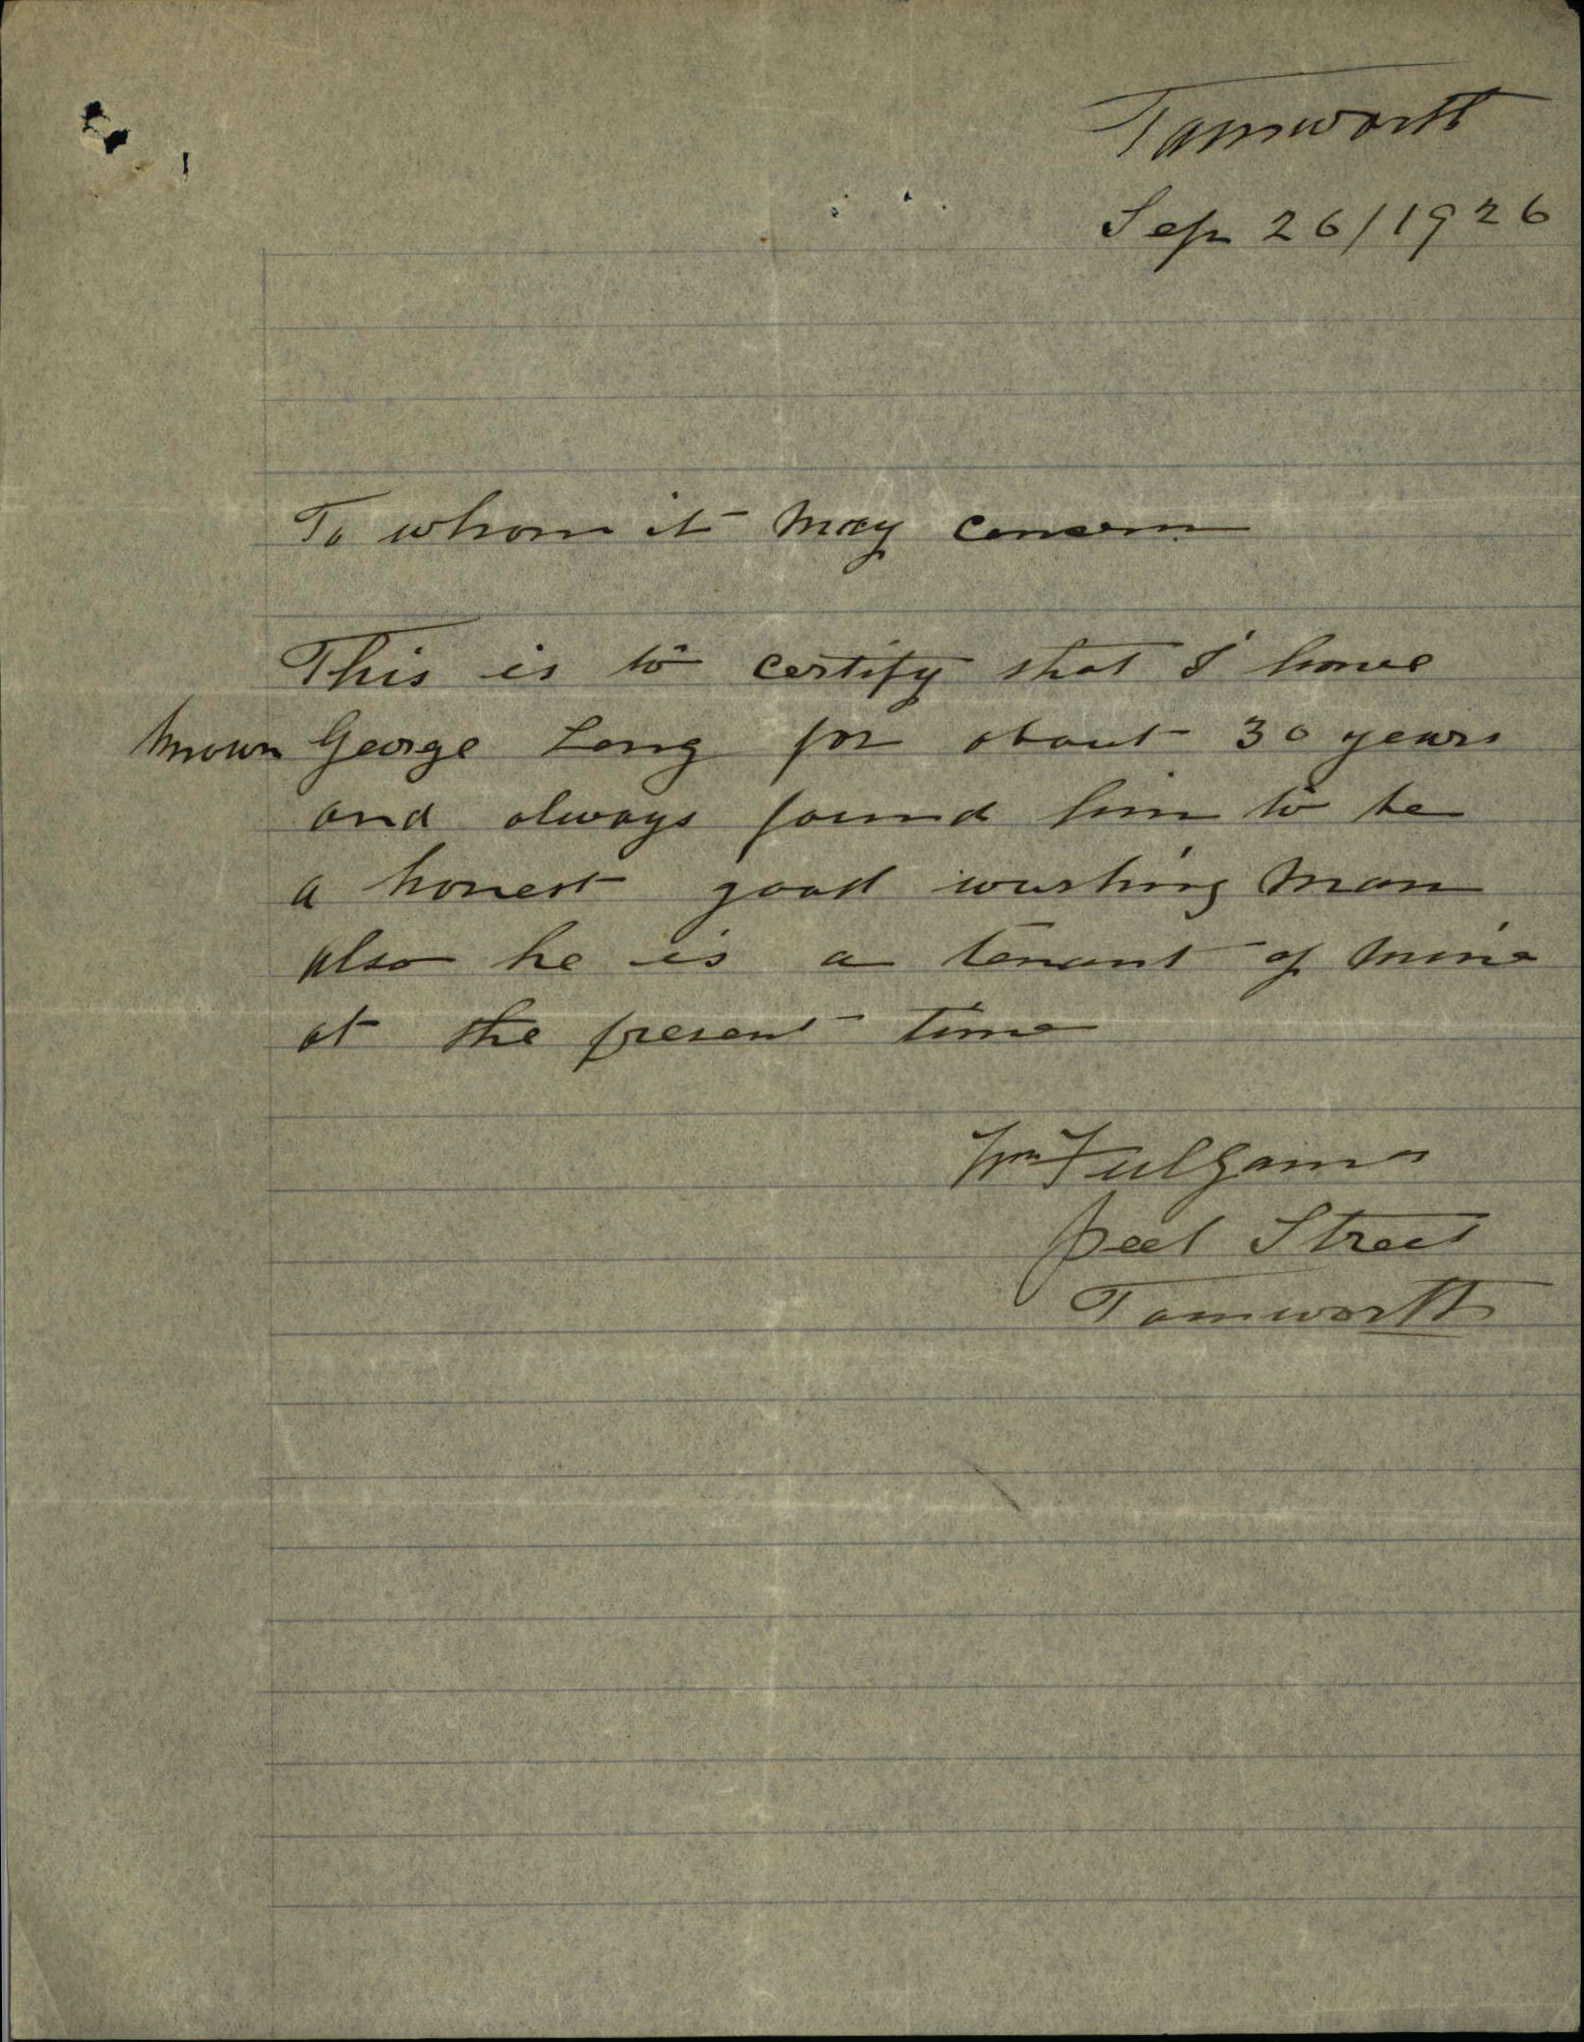 Tamworth
Sep 26/1926
To whom it may concern
This is to certify that I have
known George Long for about 30 years
and always found him to be
a honest good working man
also he is a tenant of mine
at the present time
Wm
Peel Street
Tamworth